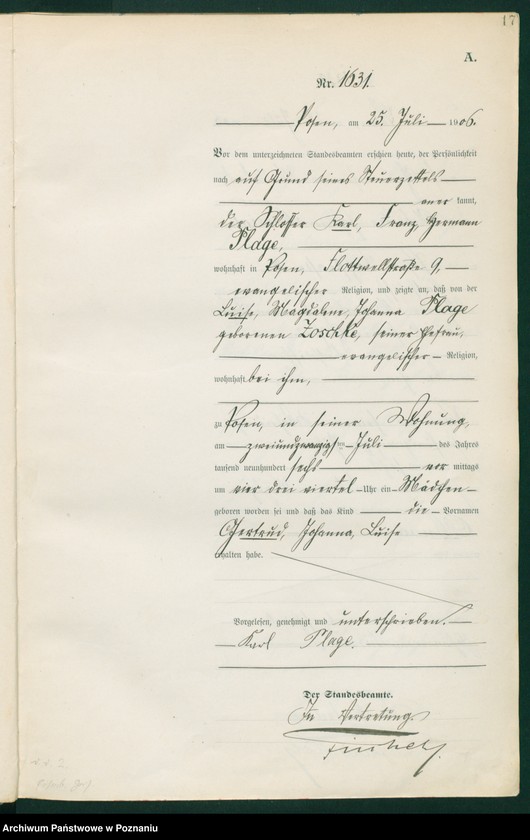 17
A.
Nr. 1631.
Posen, am 25. Juli 1906.
Vor dem unterzeichneten Standesbeamten erschien heute, der Persönlichkeit
nach auf Grund seines Steuerzettels
anerkannt,
der Schlosser Karl, Franz, Hermann
Plage,
wohnhaft in Posen, Flottwellstraße 9,
evangelischer Religion, und zeigte an, daß von der
Luise, Magdalene, Johanna Plage
geborenen Zoschke, seiner Ehefrau,
evangelischer Religion,
wohnhaft bei ihm,
zu Posen, in seiner Wohnung,
am zweiundzwanzigsten Juli des Jahres
tausend neunhundert sechs vormittags
um vier drei viertel Uhr ein Mädchen
geboren worden sei und daß das Kind die Vornamen
Gertrud, Johanna, Luise
erhalten habe.
Vorgelesen, genehmigt und unterschrieben.
Karl Plage.
Der Standesbeamte.
In Vertretung
Archiwum Państwowe w Poznaniu